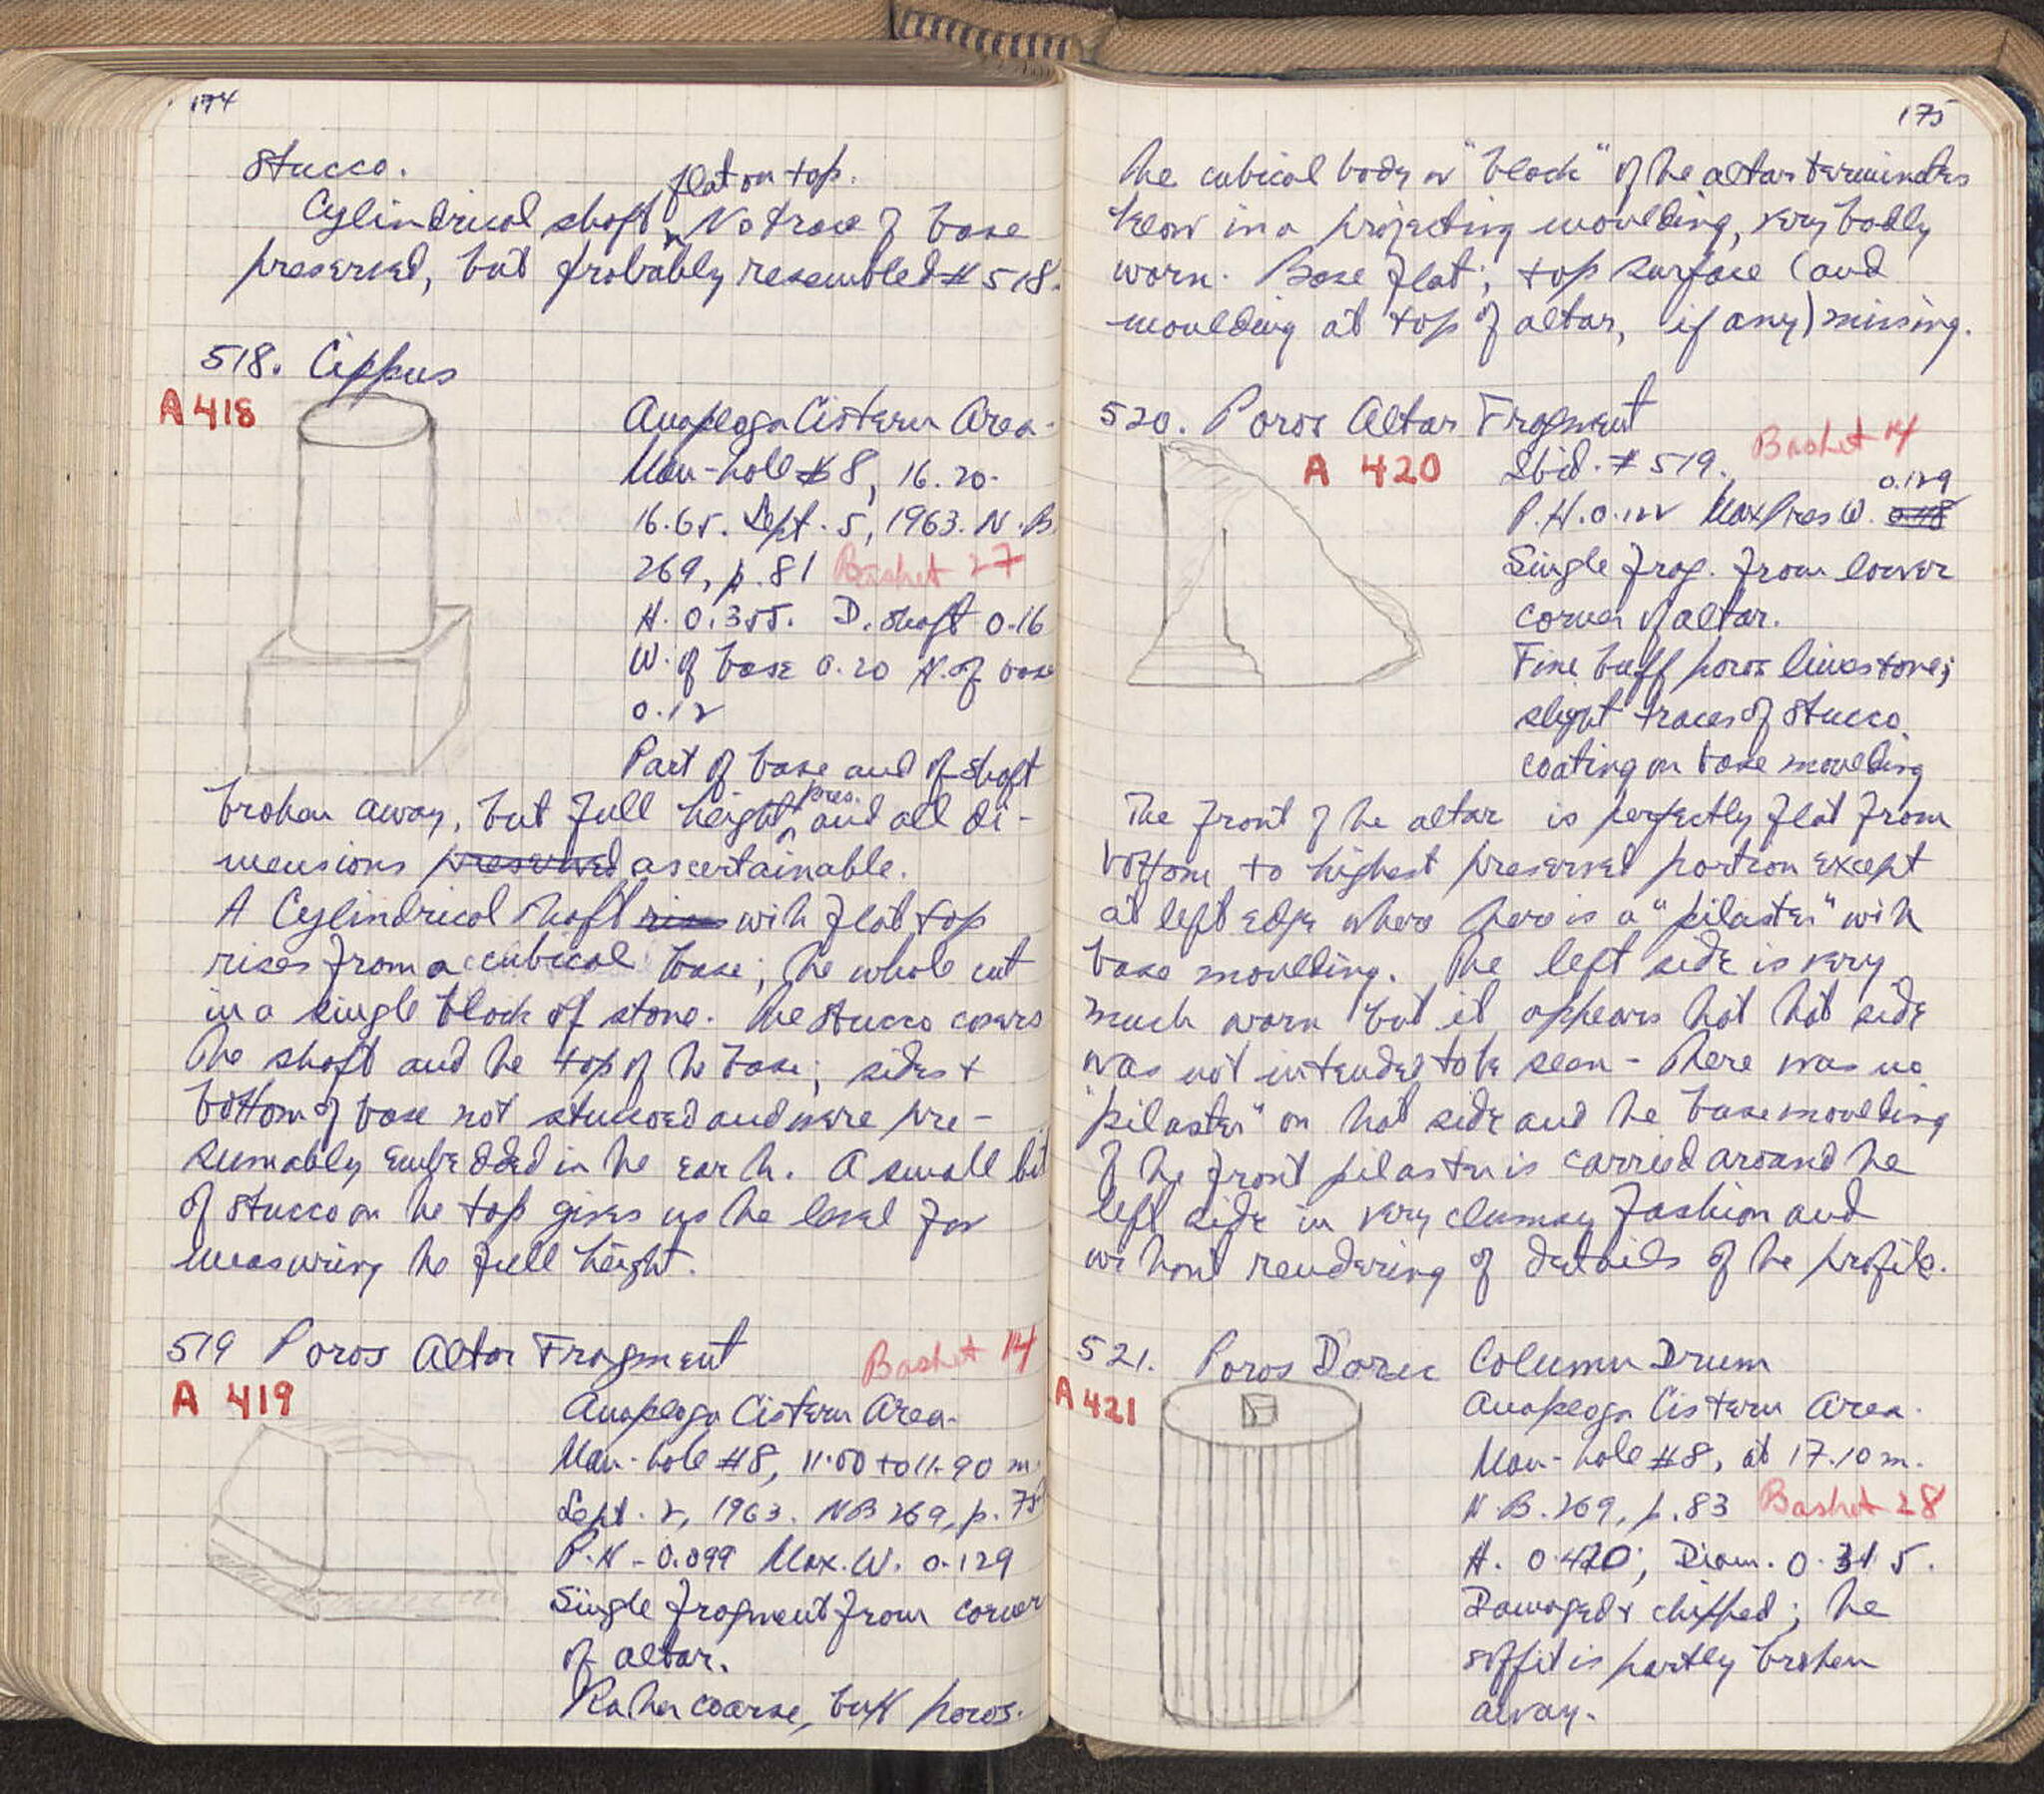 174
stucco.
Cylindrical shaft flat on top. No trace of base
preserved, but probably resembled #518.
518. Cippus
A 418
Anaploga Cistern Area.
Man-hole #8, 16.20-
16.65. Sept. 5, 1963. N.B.
269, p. 81 Basket 27
H. 0.355. D. shaft 0.16
W. of base 0.20 H. of base
0.12
Part of base and of shaft
broken away, but full height pres. and all di-
mensions preserved ascertainable.
A Cylindrical shaft rises with flat top
rises from a cubical base; the whole cut
in a single block of stone. The stucco covers
the shaft and the top of the base; sides +
bottom of base not stuccoed and were pre-
sumably embedded in the earth. A small bit
of stucco on the top gives us the level for
measuring the full height.
519 Poros Altar Fragment
Basket 14
A 419
Anaploga Cistern Area.
Man-hole #8, 11.00 to 11.90 m.
Sept. 2, 1963. NB 269, p. 75
P.H - 0.099 Max. W. 0.129
Single fragment from corner
of altar.
Rather coarse, buff poros.
175
The cubical body or "block" of the altar terminates
below in a projecting moulding, very badly
worn. Base flat; top surface (and
moulding at top of altar, if any) missing.
520. Poros Altar Fragment
A 420
Ibid. #519. Basket 14
P.H. 0.122 Max Pres W. 0.118 0.129
Single frag. from lower
corner of altar.
Fine buff poros limestone;
slight traces of stucco
coating on base moulding
The front of the altar is perfectly flat from
bottom to highest preserved portion except
at left edge where there is a "pilaster" with
base moulding. The left side is very
much worn but it appears that that side
was not intended to be seen - there was no
"pilaster" on that side and the base moulding
of the front pilaster is carried around the
left side in very clumsy fashion and
without rendering of details of the profile.
521. Poros Doric Column Drum
A 421
Anaploga Cistern Area.
Man-hole #8, at 17.10 m.
N.B. 269, p. 83 Basket 28
H. 0.420; Diam. 0.315.
Damaged + chipped; the
soffit is partly broken
away.